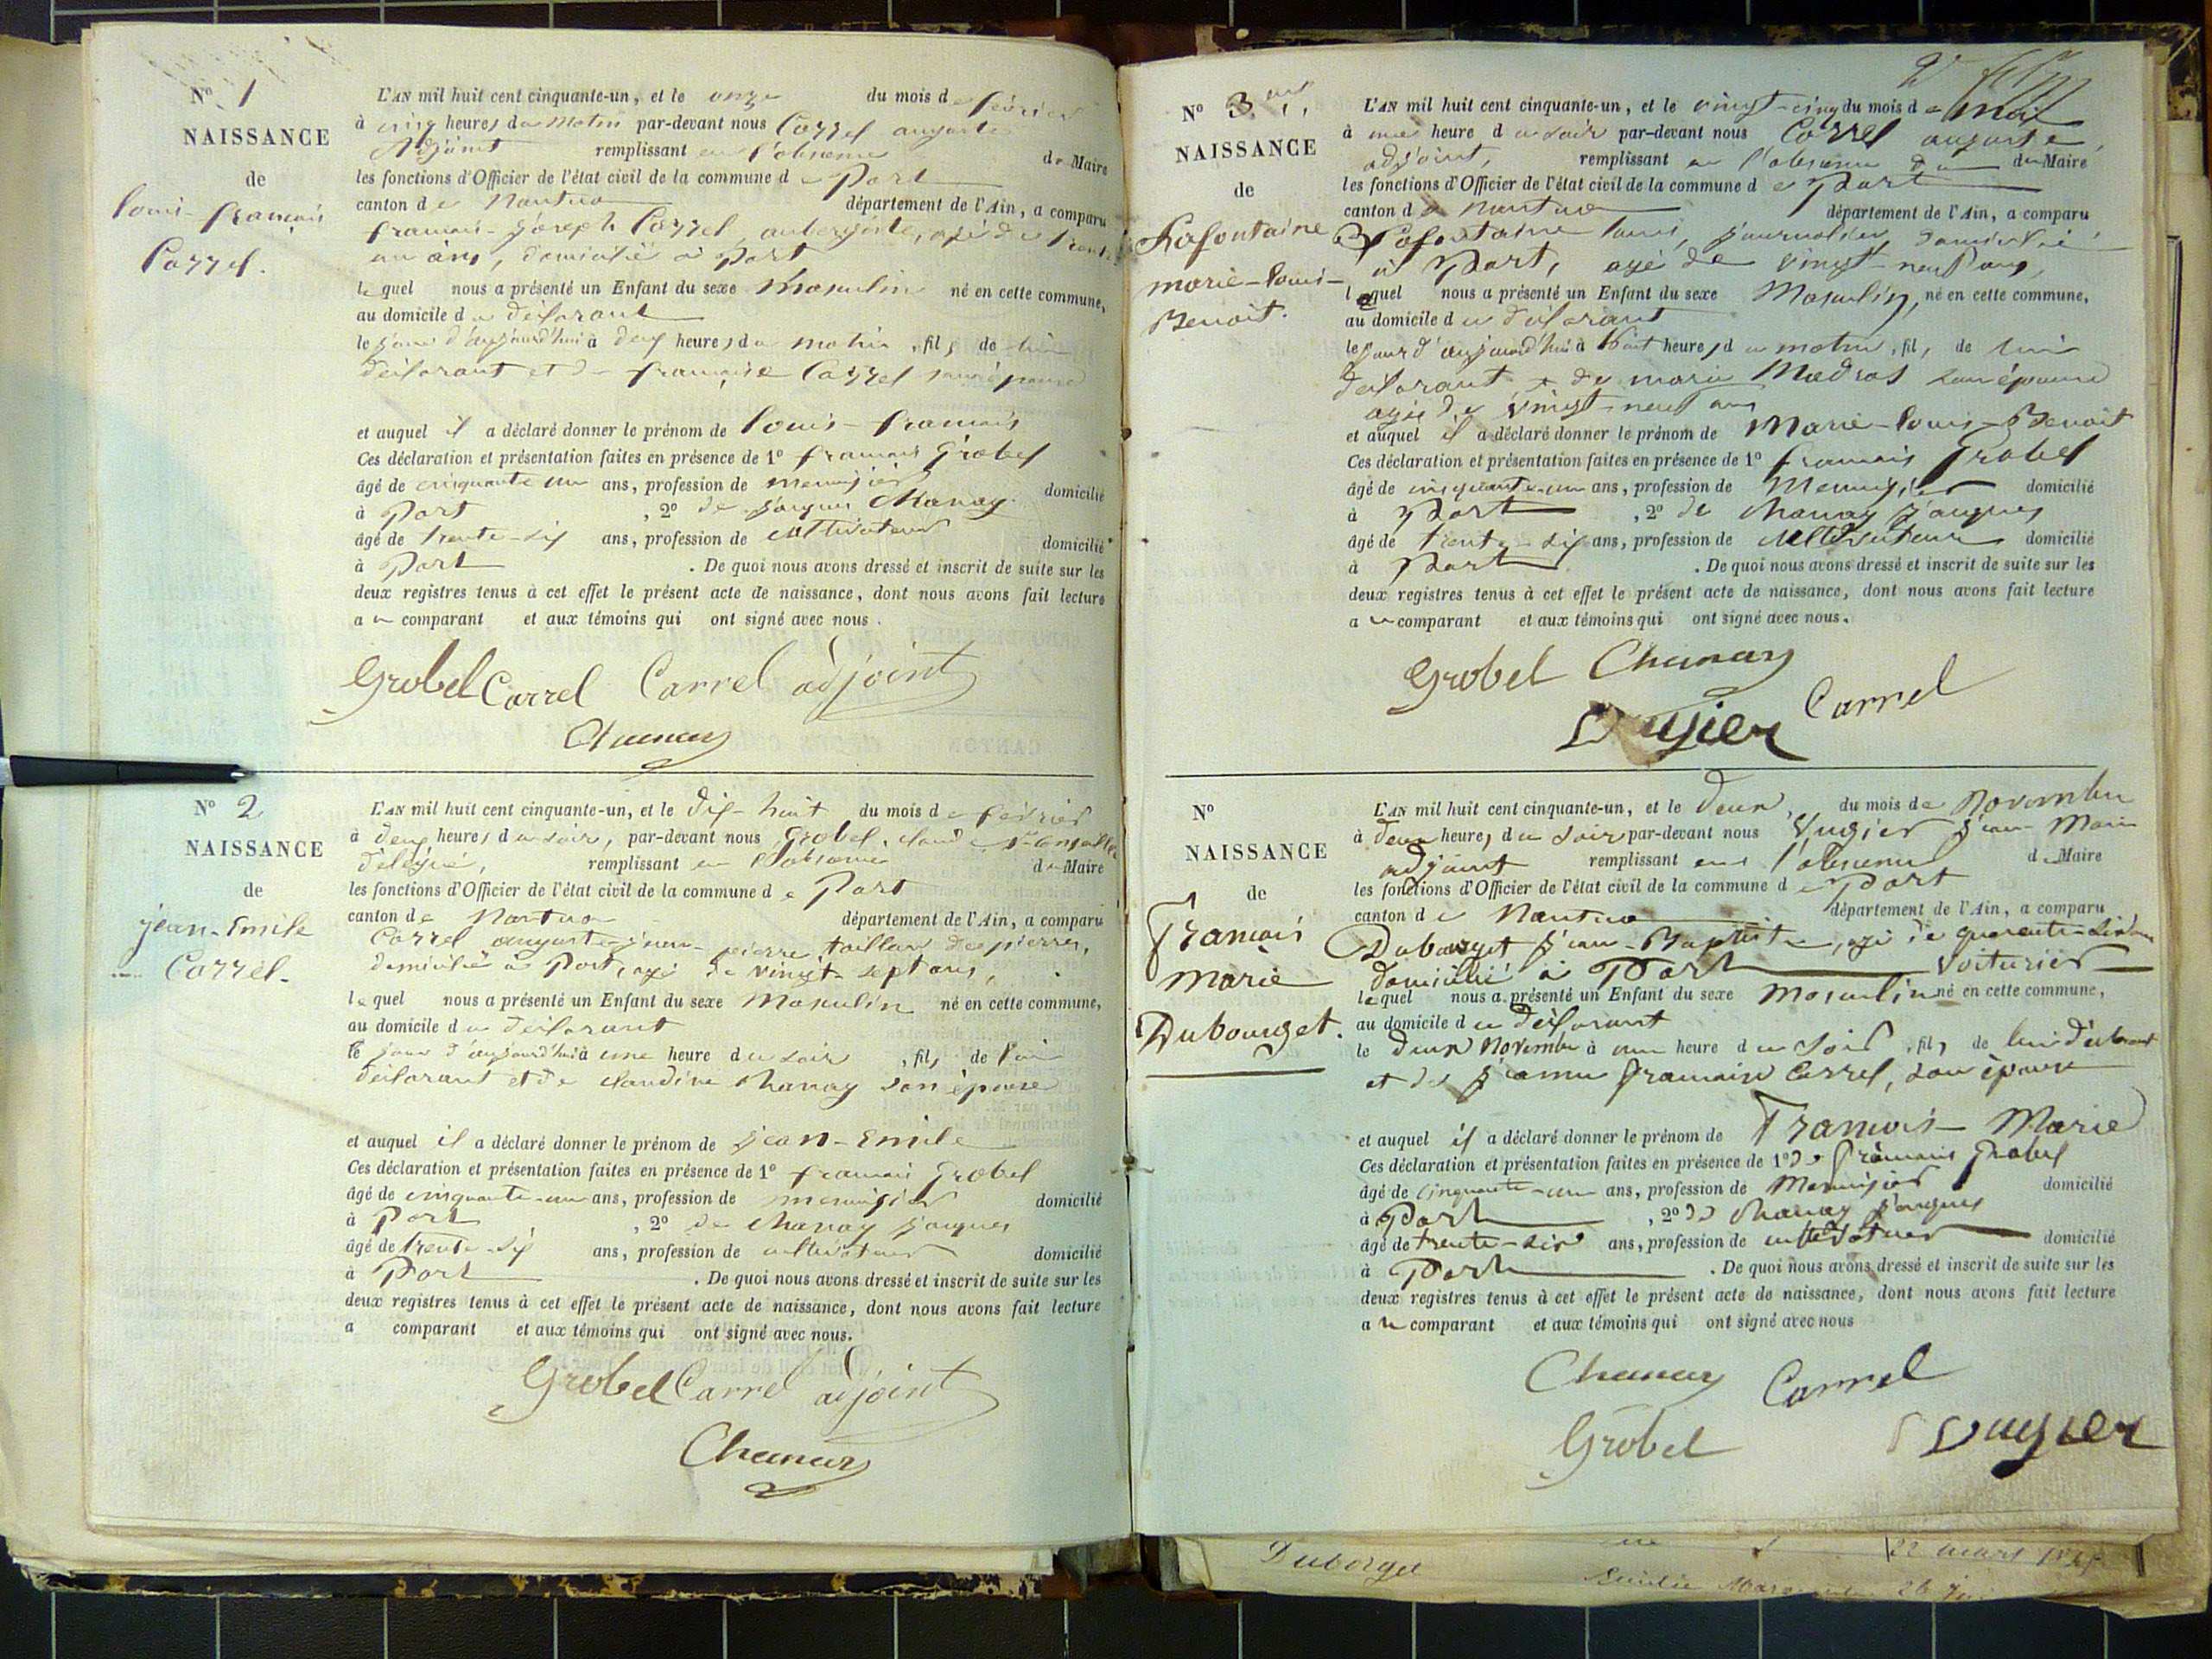 N° 1
NAISSANCE
de
louis-francois
Carrel.
L'AN mil huit cent cinquante-un, et le onze du mois de février
à cinq heures du matin par-devant nous Carrel auguste
Adjoint remplissant en l'absence du Maire
les fonctions d'Officier de l'état civil de la commune de Port
canton de Nantua département de l'Ain, a comparu
francois-joseph Carrel, aubergiste, agé de trente
un ans, domicilié à Port
lequel nous a présenté un Enfant du sexe Masculin né en cette commune,
au domicile du déclarant
le jour d'aujourd'hui à deux heures du matin, fils de lui
déclarant et de francoise Carrel son épouse
et auquel il a déclaré donner le prénom de louis-francois
Ces déclaration et présentation faites en présence de 1° francois Grobel
âgé de cinquante un ans, profession de menuisier domicilié
à Port, 2° de jacques Chanay
âgé de trente-six ans, profession de cultivateur domicilié
à Port. De quoi nous avons dressé et inscrit de suite sur les
deux registres tenus à cet effet le présent acte de naissance, dont nous avons fait lecture
au comparant et aux témoins qui ont signé avec nous.
Grobel Carrel Carrel adjoint
Chanay
N° 2
NAISSANCE
de
jean-Emile
Carrel.
L'AN mil huit cent cinquante-un, et le dix-huit du mois de février
à deux heures du soir, par-devant nous Grobel, claude
délégué, remplissant en l'absence du Maire
les fonctions d'Officier de l'état civil de la commune de Port
canton de Nantua département de l'Ain, a comparu
Carrel auguste-jean-pierre, tailleur de pierres,
domicilié à Port, agé de vingt-sept ans,
lequel nous a présenté un Enfant du sexe Masculin né en cette commune,
au domicile du déclarant
le jour d'aujourd'hui à une heure du soir, fils de lui
déclarant et de claudine Chanay son épouse
et auquel il a déclaré donner le prénom de jean-Emile
Ces déclaration et présentation faites en présence de 1° francois Grobel
âgé de cinquante-un ans, profession de menuisier domicilié
à Port, 2° de Chanay jacques
âgé de trente-six ans, profession de cultivateur domicilié
à Port. De quoi nous avons dressé et inscrit de suite sur les
deux registres tenus à cet effet le présent acte de naissance, dont nous avons fait lecture
a comparant et aux témoins qui ont signé avec nous.
Grobel Carrel adjoint
Chanay
N° 3
NAISSANCE
de
Lafontaine
marie-louis-
Benoit.
L'AN mil huit cent cinquante-un, et le vingt-cinq du mois de mai
à une heure du soir par-devant nous Carrel auguste,
adjoint, remplissant en l'absence du Maire
les fonctions d'Officier de l'état civil de la commune de Port
canton de Nantua département de l'Ain, a comparu
Lafontaine louis, journalier, domicilié
à Port, agé de vingt-neuf ans,
lequel nous a présenté un Enfant du sexe Masculin, né en cette commune,
au domicile du déclarant
le jour d'aujourd'hui à huit heures du matin, fils de lui
déclarant et de marie Madros son épouse
agée de vingt-neuf ans
et auquel il a déclaré donner le prénom de Marie-louis-Benoit
Ces déclaration et présentation faites en présence de 1° francois Grobel
âgé de cinquante-un ans, profession de Menuisier domicilié
à Port, 2° de Chanay jacques
âgé de trente-six ans, profession de cultivateur domicilié
à Port. De quoi nous avons dressé et inscrit de suite sur les
deux registres tenus à cet effet le présent acte de naissance, dont nous avons fait lecture
au comparant et aux témoins qui ont signé avec nous.
Grobel Chanay
Carrel
Vugier
N°
NAISSANCE
de
Francois
Marie
Dubourget.
L'AN mil huit cent cinquante-un, et le deux, du mois de Novembre
à deux heures du soir par-devant nous Vugier jean-Marie
adjoint remplissant en l'absence du Maire
les fonctions d'Officier de l'état civil de la commune de Port
canton de Nantua département de l'Ain, a comparu
Dubourget jean-Baptiste, agé de quarante-six ans
domicilié à Port voiturier
lequel nous a présenté un Enfant du sexe masculin né en cette commune,
au domicile du déclarant
le deux Novembre à une heure du soir, fils de lui déclarant
et de jeanne francoise Carrel, son épouse
et auquel il a déclaré donner le prénom de Francois-Marie
Ces déclaration et présentation faites en présence de 1° de francois Grobel
âgé de cinquante-un ans, profession de Menuisier domicilié
à Port, 2° de Chanay jacques
âgé de trente-six ans, profession de cultivateur domicilié
à Port. De quoi nous avons dressé et inscrit de suite sur les
deux registres tenus à cet effet le présent acte de naissance, dont nous avons fait lecture
au comparant et aux témoins qui ont signé avec nous
Chanay Carrel
Grobel Vugier
Duborget 22 mars
Emilie 26